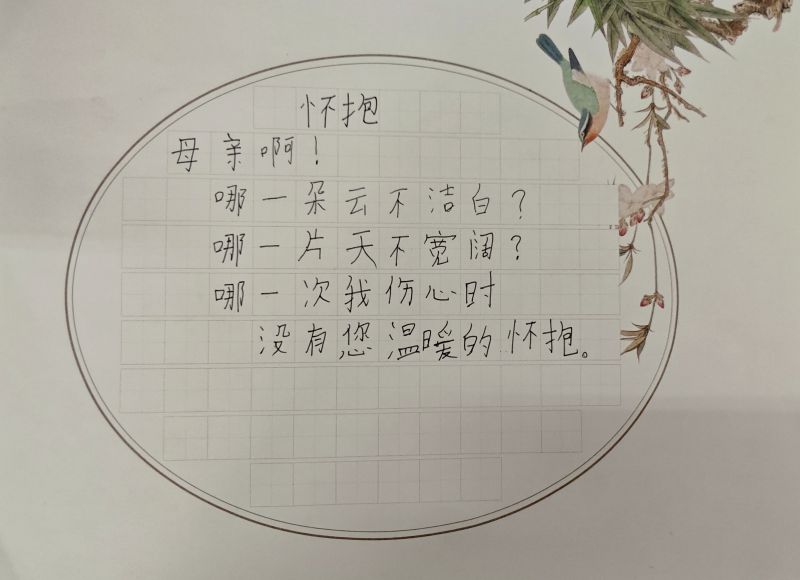 怀抱
母亲啊！
哪一朵云不洁白？
哪一片天不宽阔？
哪一次我伤心时
没有您温暖的怀抱。